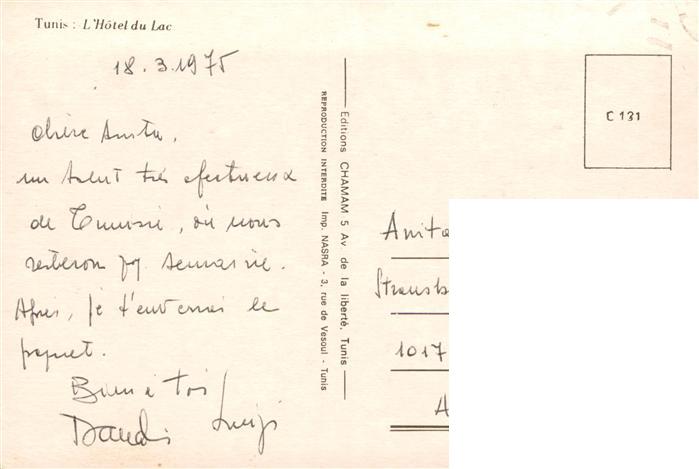 Tunis : L'Hôtel du Lac
18.3.1975
Chère Anita,
un salut très
de Tunisie, où nous
semaine.
Après, je t'enverrai le
paquet.
Bien à toi
Luigi
Editions CHAMAM 5 Av. de la liberté, Tunis
REPRODUCTION INTERDITE Imp. NASRA - 3, rue de Vesoul - Tunis
C 131
Anita
1017
A